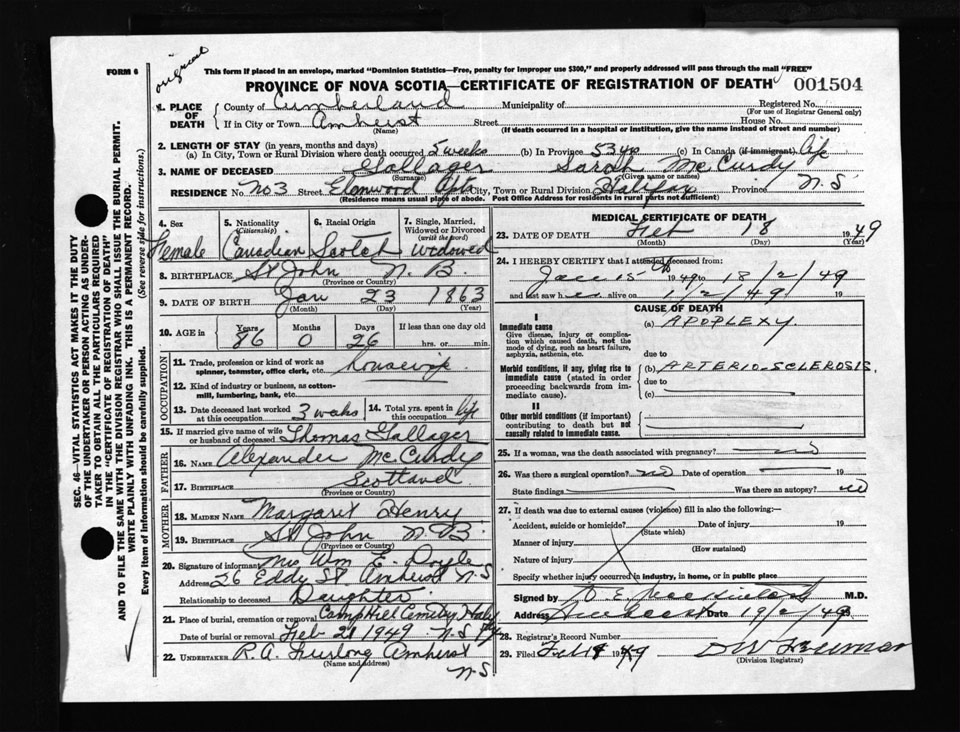 original
FORM 6
This form if placed in an envelope, marked "Dominion Statistics—Free, penalty for improper use $300," and properly addressed will pass through the mail "FREE"
PROVINCE OF NOVA SCOTIA—CERTIFICATE OF REGISTRATION OF DEATH 001504
1. PLACE OF DEATH County of Cumberland Municipality of Registered No. (For use of Registrar General only)
If in City or Town Amherst (Name) Street House No.
(If death occurred in a hospital or institution, give the name instead of street and number)
2. LENGTH OF STAY (in years, months and days)
(a) In City, Town or Rural Division where death occurred 5 weeks (b) In Province 53 yrs (c) In Canada (if immigrant) life
3. NAME OF DECEASED Gallager Sarah McCurdy
(Surname) (Given name or names)
RESIDENCE No. No 3 Street Elmwood Apts City, Town or Rural Division Halifax Province N.S
(Residence means usual place of abode. Post Office Address for residents in rural parts not sufficient)
4. Sex Female
5. Nationality (Citizenship) Canadian
6. Racial Origin Scotch
7. Single, Married, Widowed or Divorced (write the word) widowed
8. BIRTHPLACE St John N.B.
(Province or Country)
9. DATE OF BIRTH Jan 23 1863
(Month) (Day) (Year)
10. AGE in Years 86 Months 0 Days 26 If less than one day old hrs. or min.
OCCUPATION
11. Trade, profession or kind of work as spinner, teamster, office clerk, etc. housewife
12. Kind of industry or business, as cotton-mill, lumbering, bank, etc.
13. Date deceased last worked at this occupation 3 weeks
14. Total yrs. spent in this occupation life
15. If married give name of wife or husband of deceased Thomas Gallager
FATHER
16. NAME Alexander McCurdy
17. BIRTHPLACE Scotland
(Province or Country)
MOTHER
18. MAIDEN NAME Margaret Henry
19. BIRTHPLACE St John N.B.
(Province or Country)
20. Signature of informant Mrs Wm E. Doyle
Address 26 Eddy St Amherst N-S
Relationship to deceased Daughter
21. Place of burial, cremation or removal Camp Hill Cemetery Halifax
Date of burial or removal Feb 21 1949 N.S
22. UNDERTAKER R.A. Furlong Amherst
(Name and address) N-S
MEDICAL CERTIFICATE OF DEATH
23. DATE OF DEATH Feb 18 1949
(Month) (Day) (Year)
24. I HEREBY CERTIFY that I attended deceased from:
Jan 15 1949 to 18/2/49
and last saw h alive on 1/2/49 19
CAUSE OF DEATH
I
Immediate cause
Give disease, injury or complication which caused death, not the mode of dying, such as heart failure, asphyxia, asthenia, etc.
(a) APOPLEXY.
due to
Morbid conditions, if any, giving rise to immediate cause (stated in order proceeding backwards from immediate cause).
(b) ARTERIO-SCLEROSIS.
due to
(c)
II
Other morbid conditions (if important) contributing to death but not causally related to immediate cause.
25. If a woman, was the death associated with pregnancy? no
26. Was there a surgical operation? no Date of operation 19
State findings Was there an autopsy? no
27. If death was due to external causes (violence) fill in also the following:—
Accident, suicide or homicide? (State which) Date of injury 19
Manner of injury (How sustained)
Nature of injury
Specify whether injury occurred in industry, in home, or in public place
Signed by M.D.
Address Amherst Date 19/2/49
28. Registrar's Record Number
29. Filed Feb 19 1949
(Division Registrar)
SEC. 46—VITAL STATISTICS ACT MAKES IT THE DUTY
OF THE UNDERTAKER OR PERSON ACTING AS UNDERTAKER
TO OBTAIN ALL THE PARTICULARS REQUIRED
IN THE "CERTIFICATE OF REGISTRATION OF DEATH"
AND TO FILE THE SAME WITH THE DIVISION REGISTRAR WHO SHALL ISSUE THE BURIAL PERMIT.
WRITE PLAINLY WITH UNFADING INK. THIS IS A PERMANENT RECORD.
Every item of information should be carefully supplied. (See reverse side for instructions.)